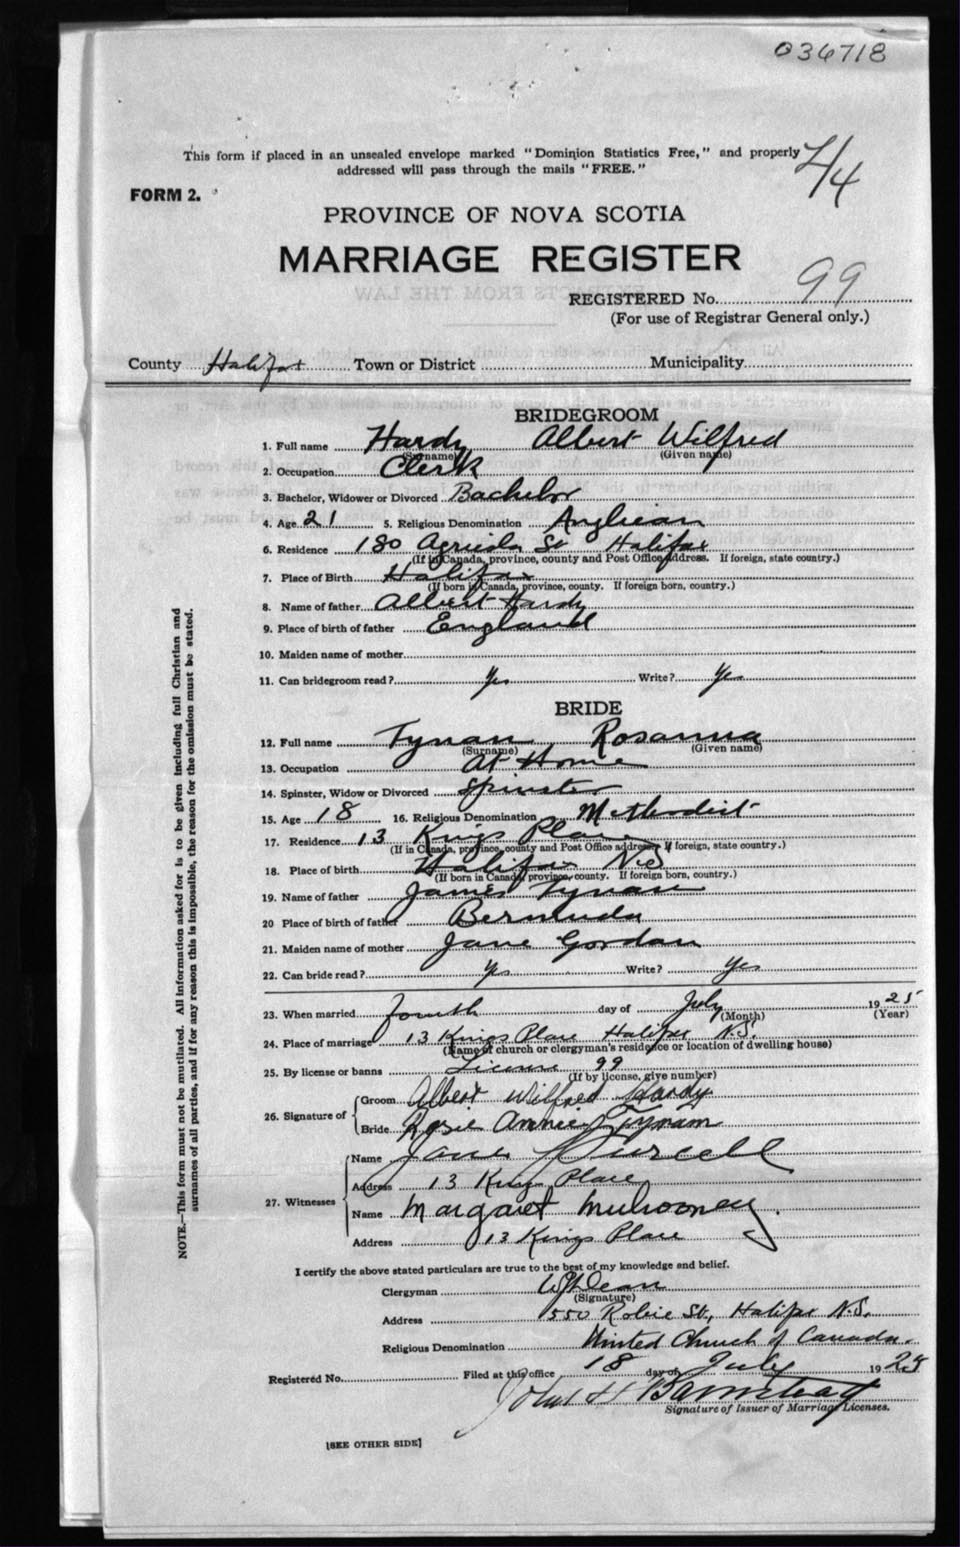 036718
This form if placed in an unsealed envelope marked "Dominion Statistics Free," and properly
addressed will pass through the mails "FREE."
FORM 2.
PROVINCE OF NOVA SCOTIA
MARRIAGE REGISTER
REGISTERED No. 99
(For use of Registrar General only.)
County Halifax Town or District Municipality
BRIDEGROOM
1. Full name Hardy Albert Wilfred
(Surname) (Given name)
2. Occupation Clerk
3. Bachelor, Widower or Divorced Bachelor
4. Age 21 5. Religious Denomination Anglican
6. Residence 180 Agricola St Halifax
(If in Canada, province, county and Post Office address. If foreign, state country.)
7. Place of Birth Halifax
(If born in Canada, province, county. If foreign born, country.)
8. Name of father Albert Hardy
9. Place of birth of father England
10. Maiden name of mother
11. Can bridegroom read? Yes Write? Yes
BRIDE
12. Full name Tynan Rosanna
(Surname) (Given name)
13. Occupation At Home
14. Spinster, Widow or Divorced Spinster
15. Age 18 16. Religious Denomination Methodist
17. Residence 13 Kings Place
(If in Canada, province, county and Post Office address. If foreign, state country.)
18. Place of birth Halifax N.S.
(If born in Canada, province, county. If foreign born, country.)
19. Name of father James Tynan
20 Place of birth of father Bermuda
21. Maiden name of mother Jane Gordan
22. Can bride read? Yes Write? Yes
23. When married fourth day of July 1925
(Month) (Year)
24. Place of marriage 13 Kings Place Halifax N.S.
(Name of church or clergyman's residence or location of dwelling house)
25. By license or banns License 99
(If by license, give number)
26. Signature of
Groom Albert Wilfred Hardy
Bride Rosie Annie Tynam
27. Witnesses
Name Jane Purcell
Address 13 Kings Place
Name Margaret Mulrooney.
Address 13 Kings Place
I certify the above stated particulars are true to the best of my knowledge and belief.
Clergyman Dean
(Signature)
Address 550 Robie St., Halifax N.S.
Religious Denomination United Church of Canada.
Registered No. Filed at this office 18 day of July 19
John H Barnstead
Signature of Issuer of Marriage Licenses.
[SEE OTHER SIDE]
NOTE.—This form must not be mutilated. All information asked for is to be given including full Christian and
surnames of all parties, and if for any reason this is impossible, the reason for the omission must be stated.